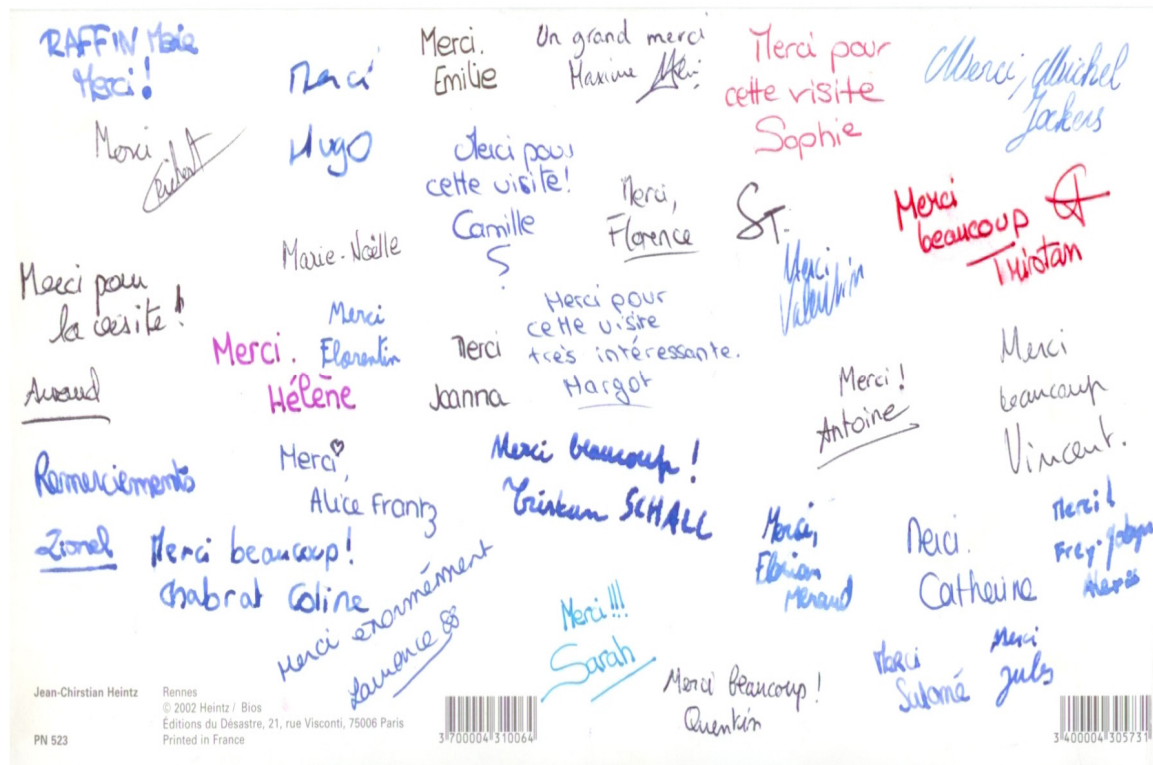 RAFFIN Marie
Merci !
Merci
Hugo
Merci.
Emilie
Un grand merci
Maxime
Merci pour
cette visite
Sophie
Merci, Michel
Jockers
Merci
Merci pour
cette visite !
Camille
Merci,
Florence
ST.
Merci
Valentin
Merci
beaucoup
Tristan
Marie-Noëlle
Merci pour
la visite !
Arnaud
Merci.
Hélène
Merci
Florentin
Merci
Joanna
Merci pour
cette visite
très intéressante.
Margot
Merci !
Antoine
Merci
beaucoup
Vincent.
Remerciements
Lionel
Merci,
Alice Frantz
Merci beaucoup !
Tristan SCHALL
Merci beaucoup !
Chabrat Coline
Merci,
Florian
Meraud
Merci.
Catherine
Merci !
Frey-
Alexis
Merci enormément
Laurence
Merci !!!
Sarah
Merci beaucoup !
Quentin
Merci
Salomé
Merci
Jules
Jean-Chirstian Heintz
PN 523
Rennes
© 2002 Heintz / Bios
Éditions du Désastre, 21, rue Visconti, 75006 Paris
Printed in France
3 700004 310064
3 400004 305731